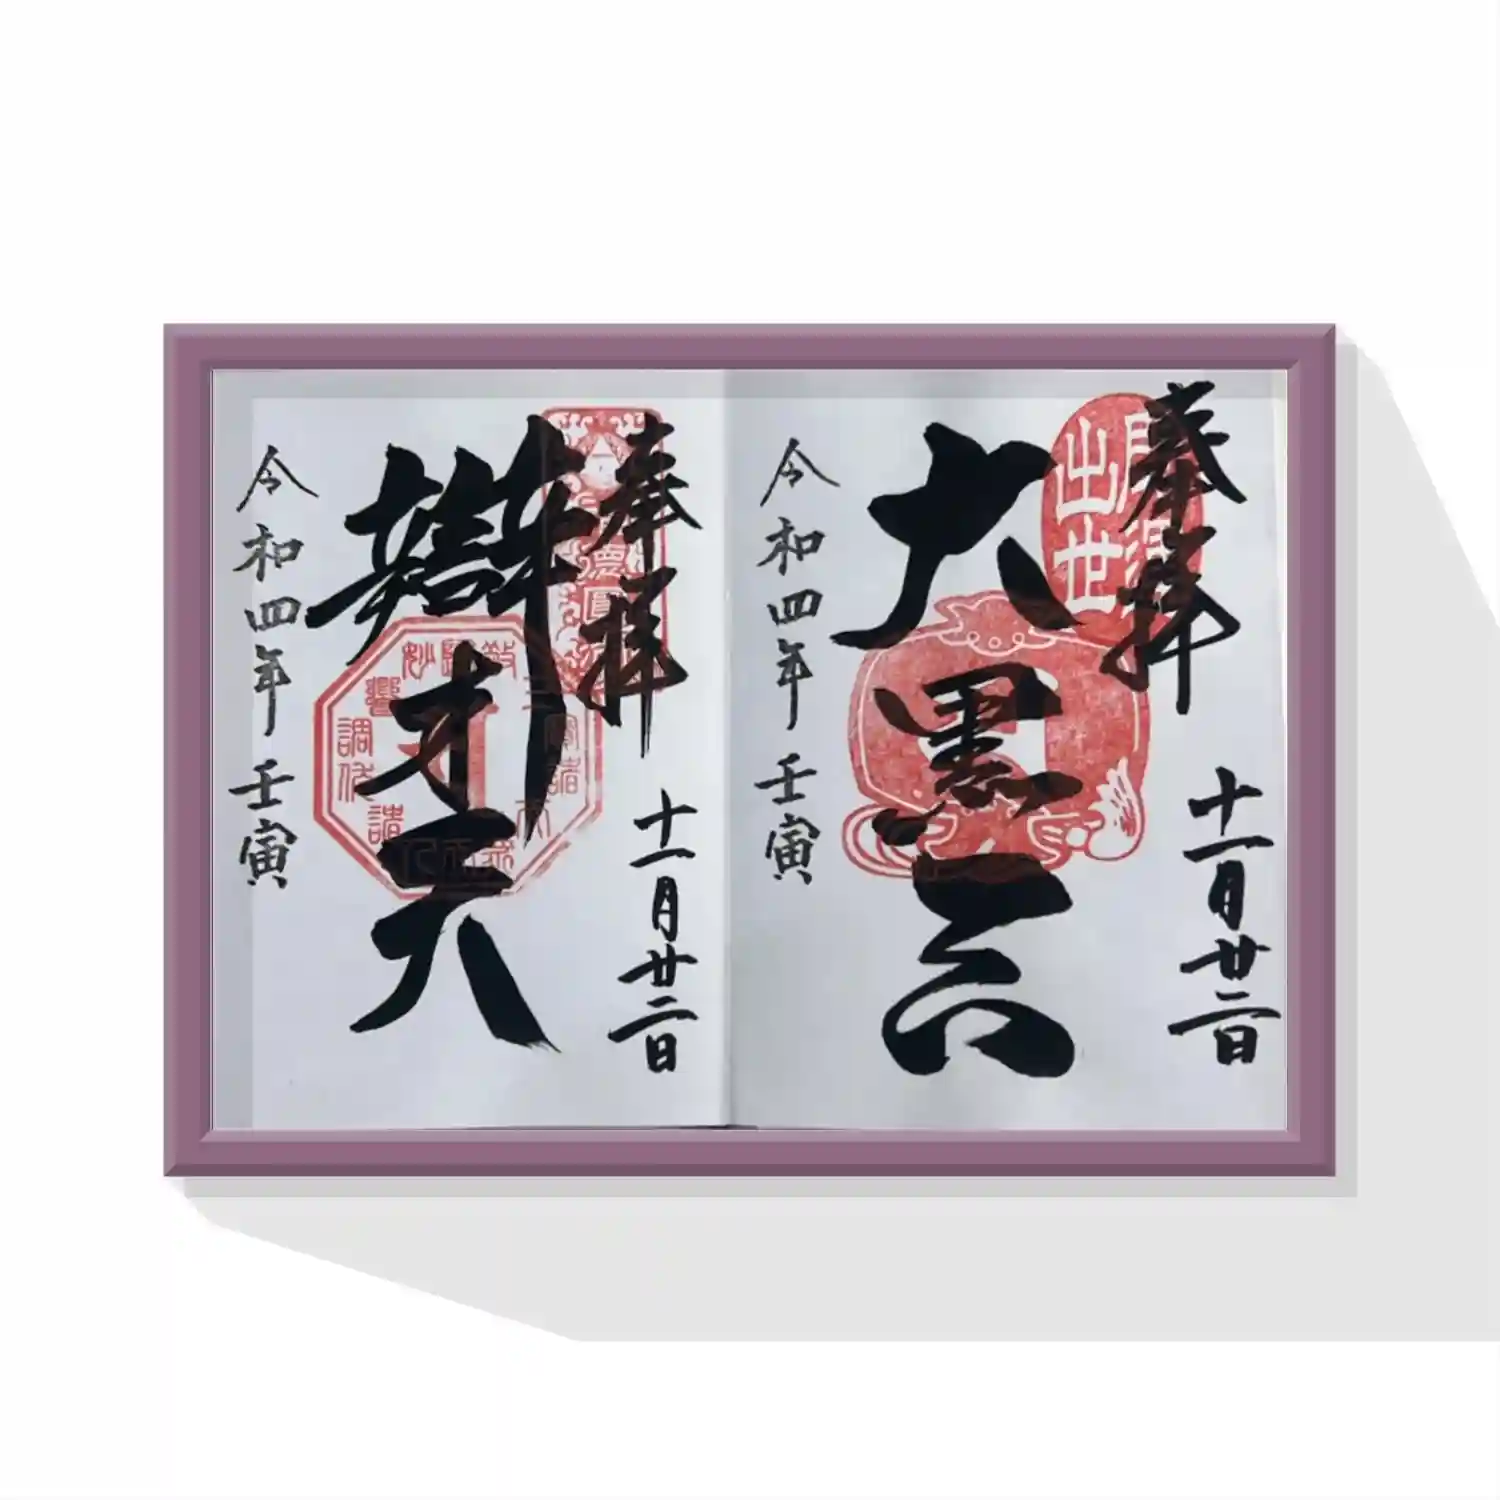 奉拝
十一月廿二日
出世
大黒天
令和四年壬寅
奉拝
十一月廿二日
辨才天
令和四年壬寅